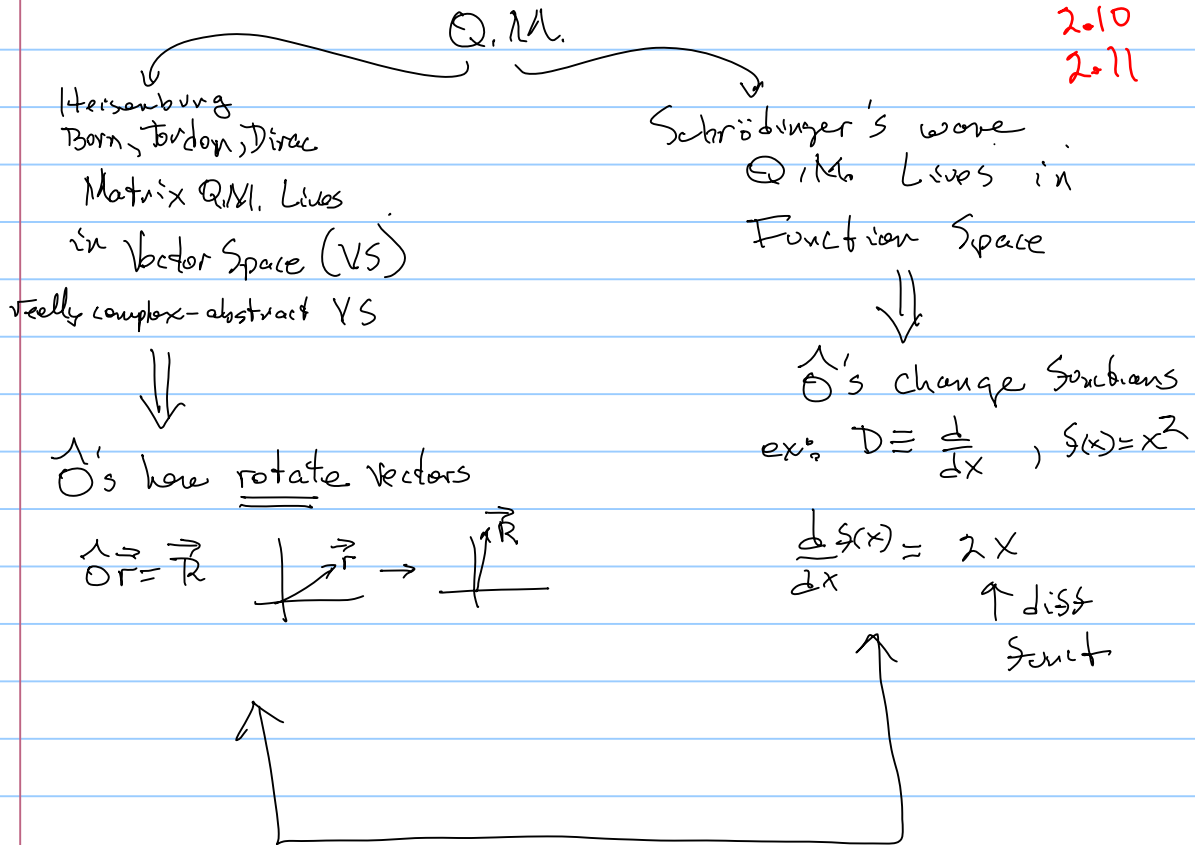 Q.M.
2.10
2.11
Heisenburg
Born, Jordon, Dirac
Matrix Q.M. Lives
in Vector Space (VS)
really complex-abstract VS
Ô's here rotate vectors
Ôr⃗ = R⃗
r⃗ →
R⃗
Schrödinger's wave
Q.M. Lives in
Function Space
Ô's change functions
ex: D ≡ d/dx , f(x)=x²
d/dx f(x) = 2x
↑ diff
funct